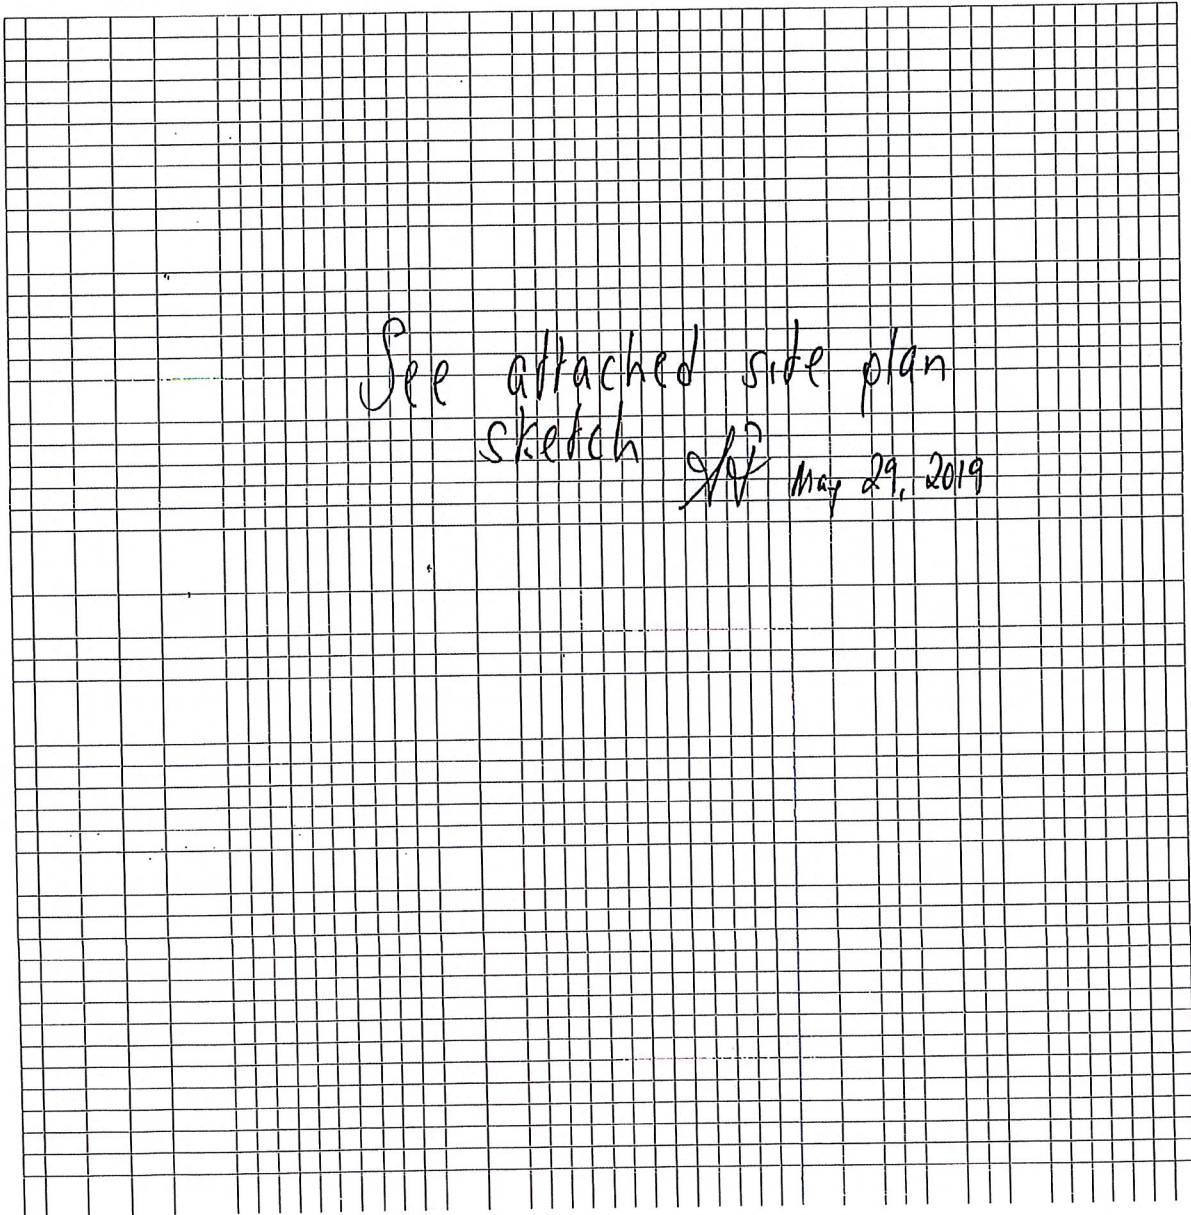 See attached side plan
sketch
May 29, 2019